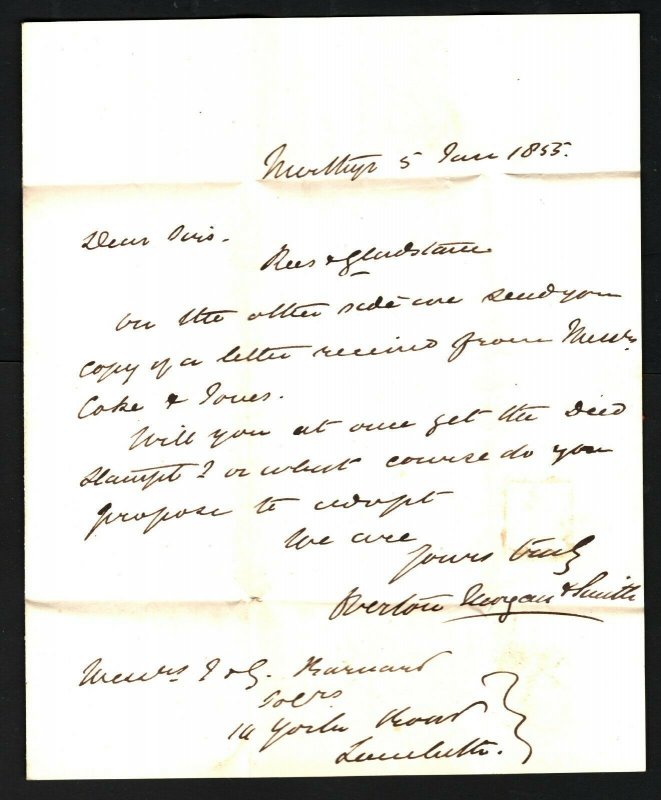 Merthyr 5 Jan 1855.
Dear Sirs.
Rees & Gladstane
On the other side we send you
copy of a letter received from Messrs.
Coke & Jones.
Will you at once get the Deed
stampt? or what course do you
propose to adopt
We are
yours truly
Overton Morgan & Smith
Messrs J & G. Barnard
Solrs
York Road
Lambeth.